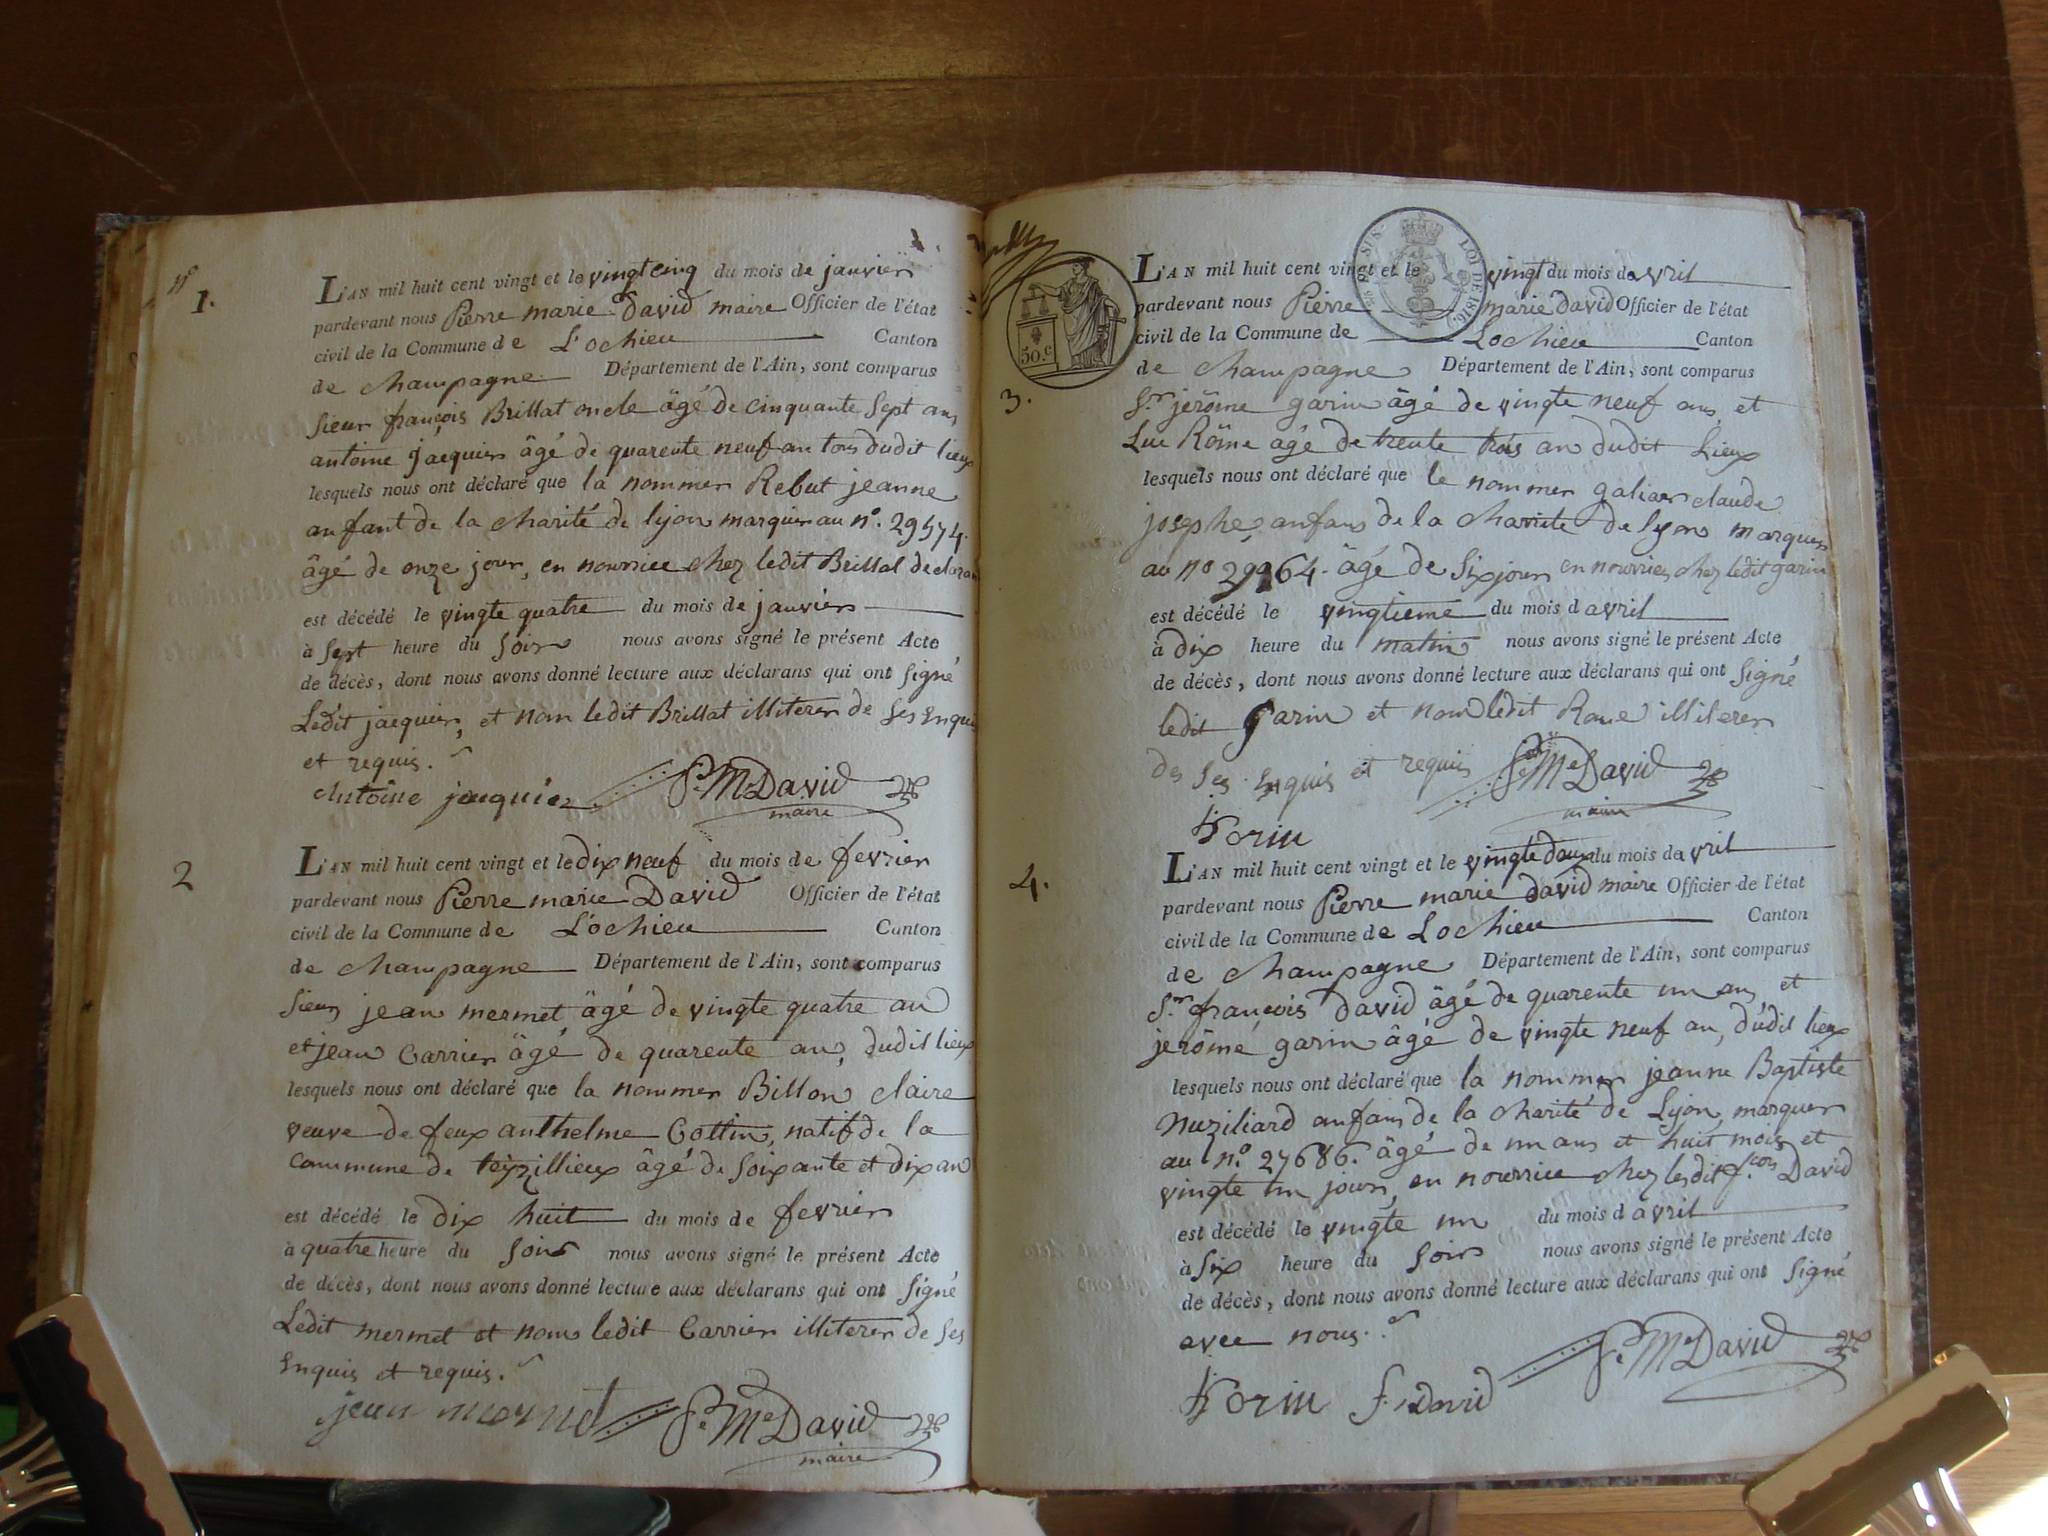 nº 1.
L'AN mil huit cent vingt et le vingt cinq du mois de janvier
pardevant nous Pierre marie David maire Officier de l'état
civil de la Commune de L'ochieu Canton
de Champagne Département de l'Ain, sont comparus
sieur françois Brillat oncle âgé de cinquante sept ans
antoine jacquier âgé de quarente neuf an tous dudit lieux
lesquels nous ont déclaré que la nommer Rebut jeanne
anfant de la charité de lyon marquer au nº. 29574.
âgé de onze jour, en nourrice chez ledit Brillat declaran
est décédé le vingte quatre du mois de janvier
à sept heure du soir nous avons signé le présent Acte
de décès, dont nous avons donné lecture aux déclarans qui ont signé
Ledit jacquier, et non ledit Brillat illiterer de ses enquis
et requis.
Antoine jacquier P. Me David
maire
2
L'AN mil huit cent vingt et le dix neuf du mois de fevrier
pardevant nous Pierre marie David Officier de l'état
civil de la Commune de L'ochieu Canton
de Champagne Département de l'Ain, sont comparus
sieur jean mermet âgé de vingte quatre an
et jean Carrier âgé de quarente an, dudit lieux
lesquels nous ont déclaré que la nommer Billon claire
veuve de feux anthelme Cottin, natif de la
commune de teÿzillieux âgé de soixante et dix an
est décédé le dix huit du mois de fevrier
à quatre heure du soir nous avons signé le présent Acte
de décès, dont nous avons donné lecture aux déclarans qui ont signé
Ledit mermet et non ledit Carrier illiterer de ses
enquis et requis.
jean mermet P. Me David
maire
50.c
LOI DE 1816.
3.
L'AN mil huit cent vingt et le vingt du mois davril
pardevant nous Pierre marie David Officier de l'état
civil de la Commune de Lochieu Canton
de Champagne Département de l'Ain, sont comparus
Sr. jerôme garin âgé de vingte neuf ans, et
Luc Rône âgé de trente trois an dudit lieux
lesquels nous ont déclaré que le nommer claude
josephe, anfans de la charité de lyon marquer
au nº 64. âgé de six jour en nourrice, chez ledit garin
est décédé le vingtieme du mois d avril
à dix heure du matin nous avons signé le présent Acte
de décès, dont nous avons donné lecture aux déclarans qui ont signé
ledit garin et non ledit Rone illiterer
des ses enquis et requis P. Me David
maire
Gorin
4.
L'AN mil huit cent vingt et le vingte deux du mois davril
pardevant nous Pierre marie David maire Officier de l'état
civil de la Commune de Lochieu Canton
de Champagne Département de l'Ain, sont comparus
Sr. françois David âgé de quarente un an, et
jerôme garin âgé de vingte neuf an, dudit lieux
lesquels nous ont déclaré que la nommer jeanne Baptiste
Nuziliard anfans de la charité de Lyon, marquer
au nº. 27686. âgé de un ans et huit mois et
vingte un jours, en nourrice chez ledit f.cois David
est décédé le vingte un du mois d avril
à six heure du soir nous avons signé le présent Acte
de décès, dont nous avons donné lecture aux déclarans qui ont signé
avec nous.
Gorin f. David P. Me David